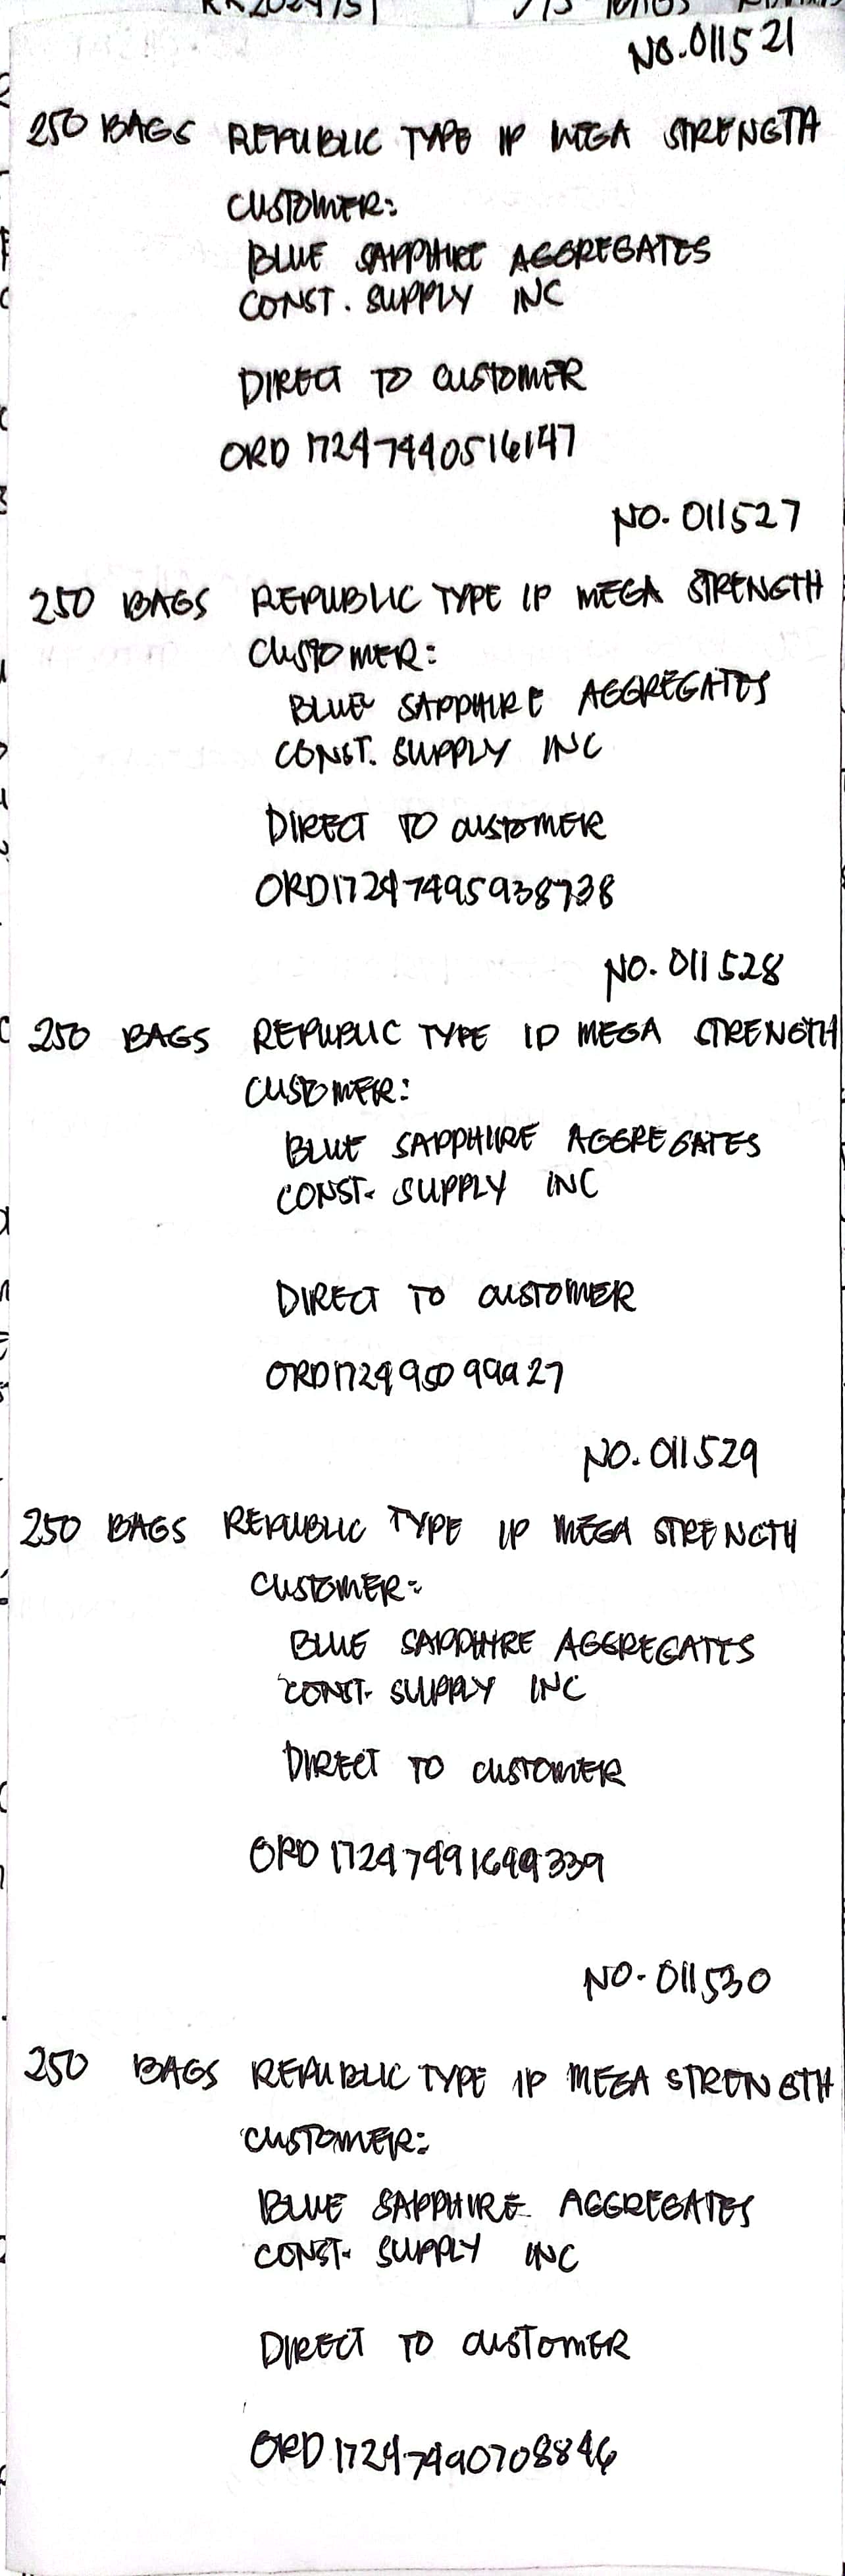 NO. 011521
250 BAGS REPUBLIC TYPE 1P MEGA STRENGTH
CUSTOMER:
BLUE SAPPHIRE AGGREGATES
CONST. SUPPLY INC
DIRECT TO CUSTOMER
ORD 17247440516147
NO. 011527
250 BAGS REPUBLIC TYPE 1P MEGA STRENGTH
CUSTOMER:
BLUE SAPPHIRE AGGREGATES
CONST. SUPPLY INC
DIRECT TO CUSTOMER
ORD17247495938738
NO. 011528
250 BAGS REPUBLIC TYPE 1P MEGA STRENGTH
CUSTOMER:
BLUE SAPPHIRE AGGREGATES
CONST. SUPPLY INC
DIRECT TO CUSTOMER
NO. 011529
250 BAGS REPUBLIC TYPE 1P MEGA STRENGTH
CUSTOMER:
BLUE SAPPHIRE AGGREGATES
CONST. SUPPLY INC
DIRECT TO CUSTOMER
ORD 17247491649339
NO. 011530
250 BAGS REPUBLIC TYPE 1P MEGA STRENGTH
CUSTOMER:
BLUE SAPPHIRE AGGREGATES
CONST. SUPPLY INC
DIRECT TO CUSTOMER
ORD 17247490708846